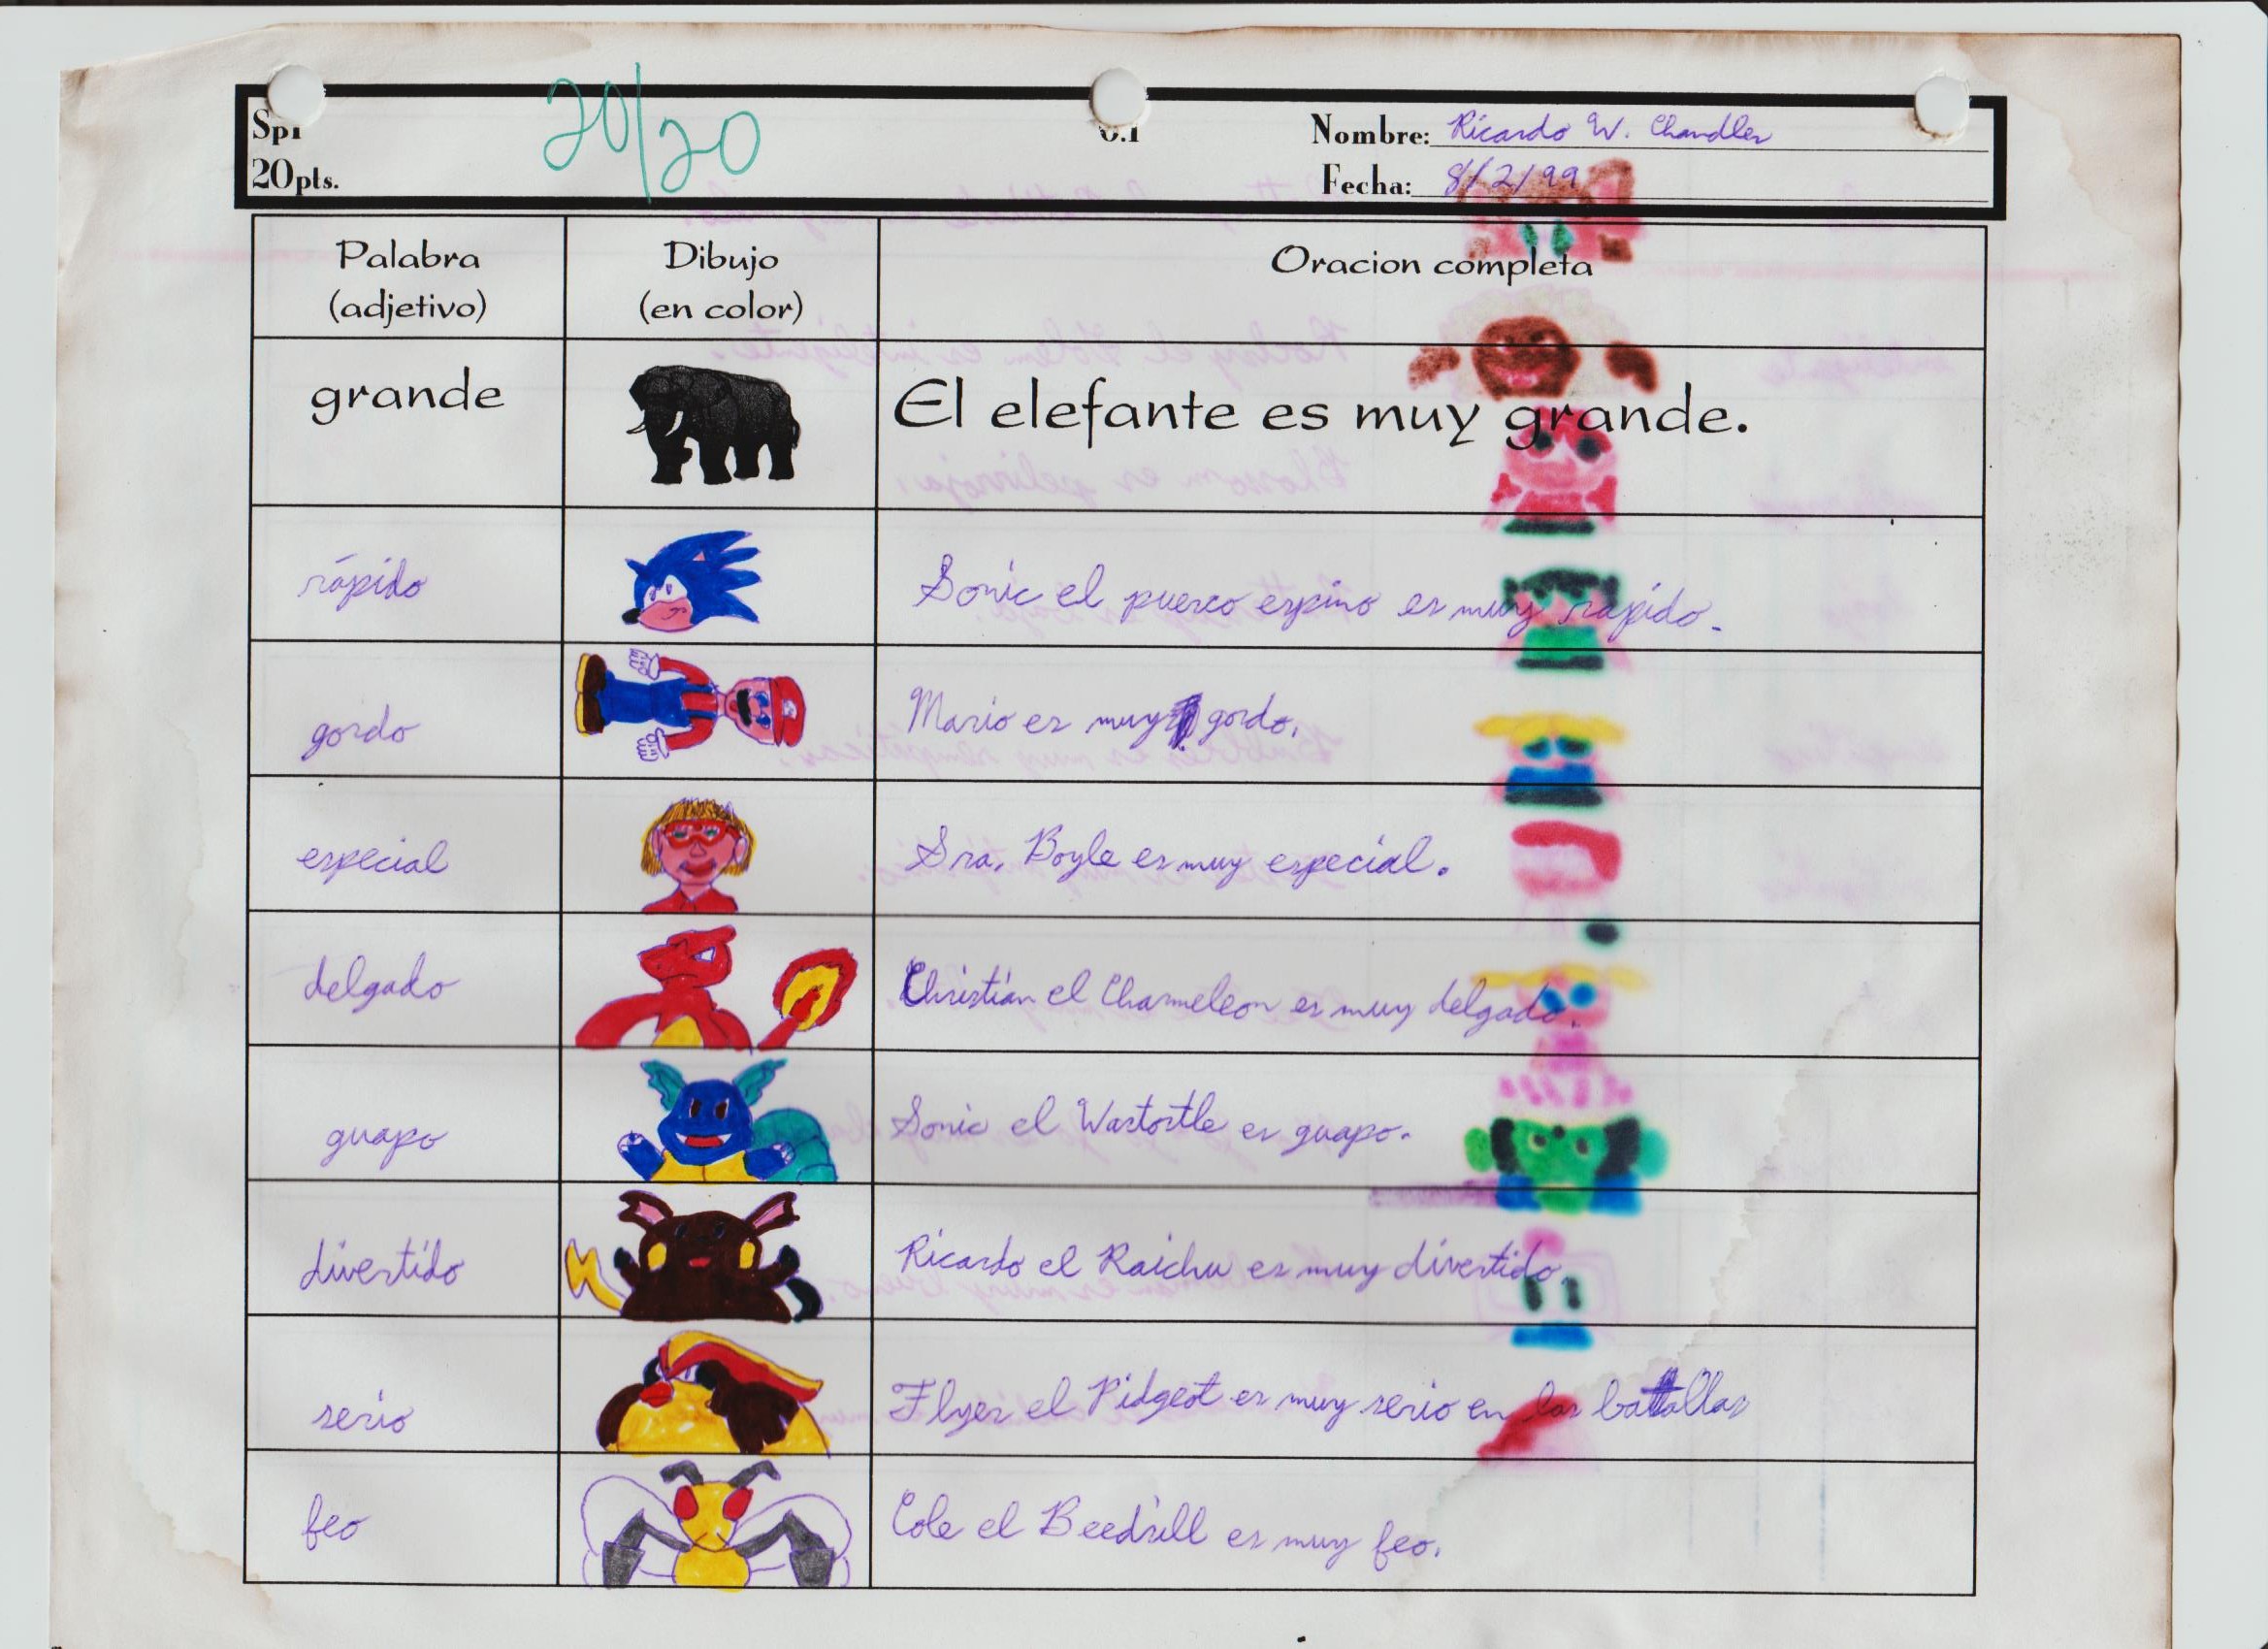 20/20
Nombre: Ricardo W. Chandler
20pts.
Fecha: 8/2/99
Palabra
(adjetivo)
Dibujo
(en color)
Oracion completa
grande
El elefante es muy grande.
rápido
Sonic el puerco espino es muy rapido.
gordo
Mario es muy gordo.
especial
Sra. Boyle es muy especial.
delgado
Christian el Charmeleon es muy delgado.
guapo
Sonic el Wartortle es guapo.
divertido
Ricardo el Raichu es muy divertido.
serio
Flyer el Pidgeot es muy serio en las batallas
feo
Cole el Beedrill es muy feo.